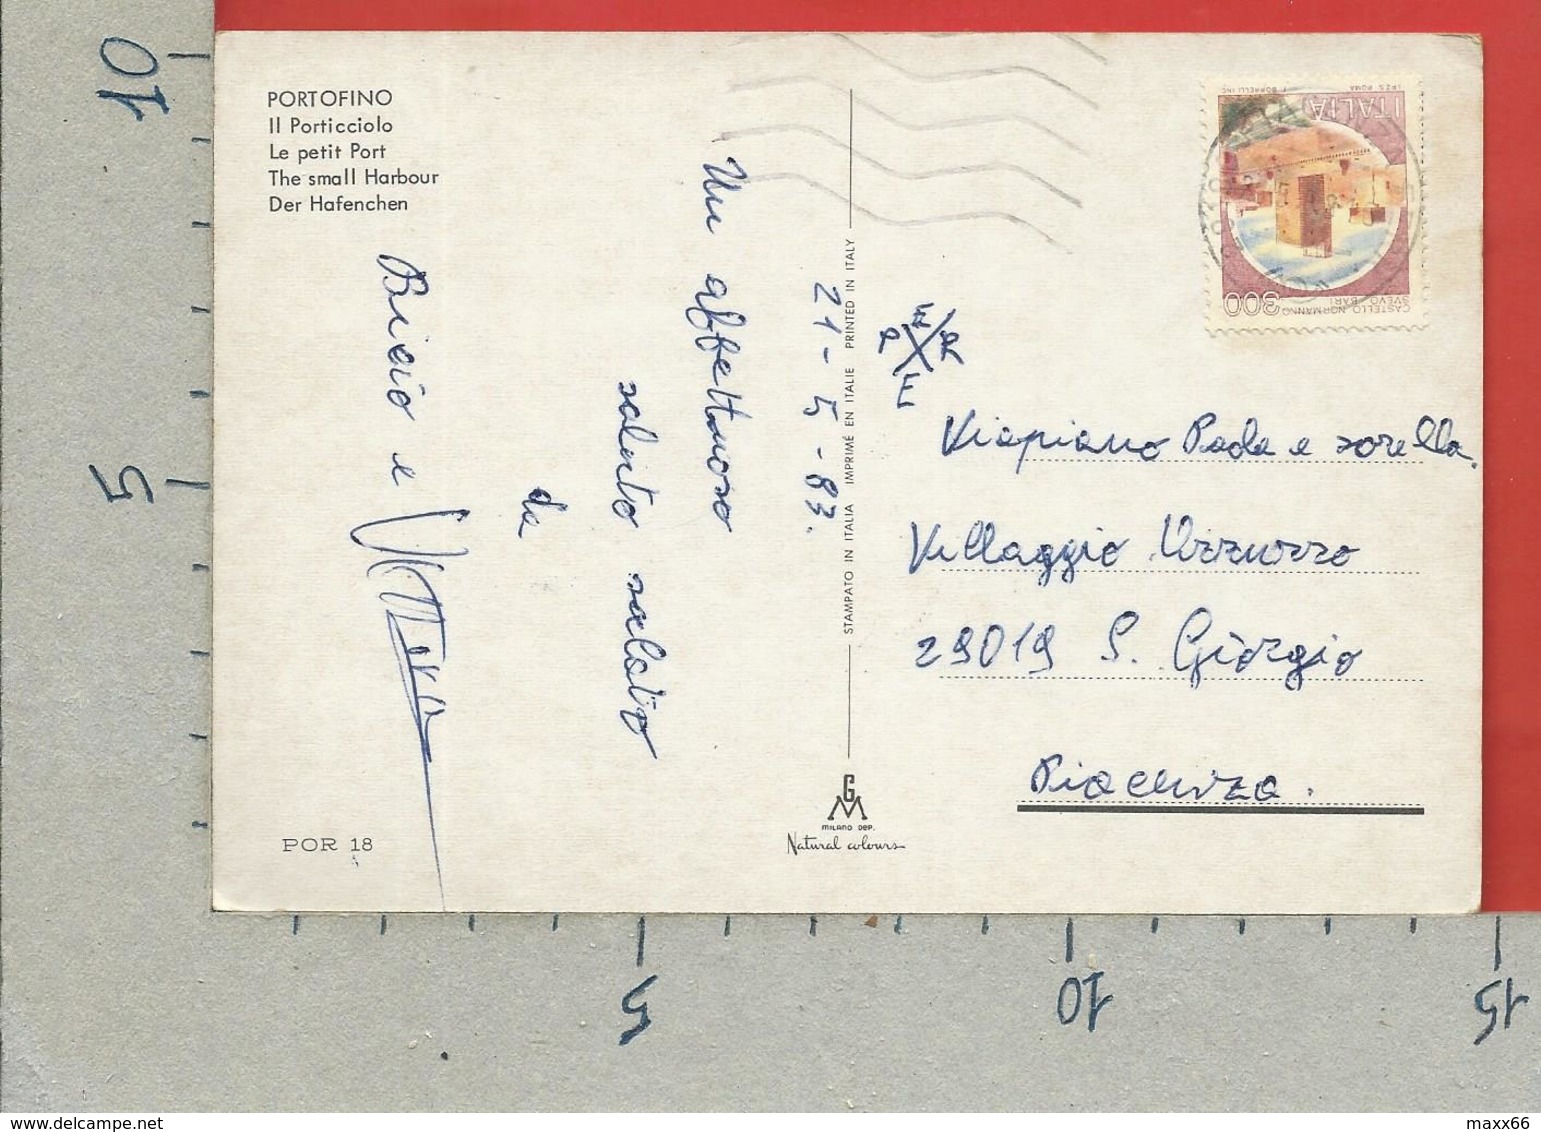 PORTOFINO
Il Porticciolo
Le petit Port
The small Harbour
Der Hafenchen
21-5-83.
Un affettuoso
saluto salato
da
Bicio e
POR 18
STAMPATO IN ITALIA IMPRIMÉ EN ITALIE PRINTED IN ITALY
GM
MILANO DEP.
Natural colours
ITALIA
I.P.Z.S. ROMA
F. BORRELLI INC.
CASTELLO NORMANNO
SVEVO BARI
300
P E R E
Viapiano Paola e sorella.
Villaggio Azzurro
29019 S. Giorgio
Piacenza.
10
5
5
10
15
delcampe.net
maxx66